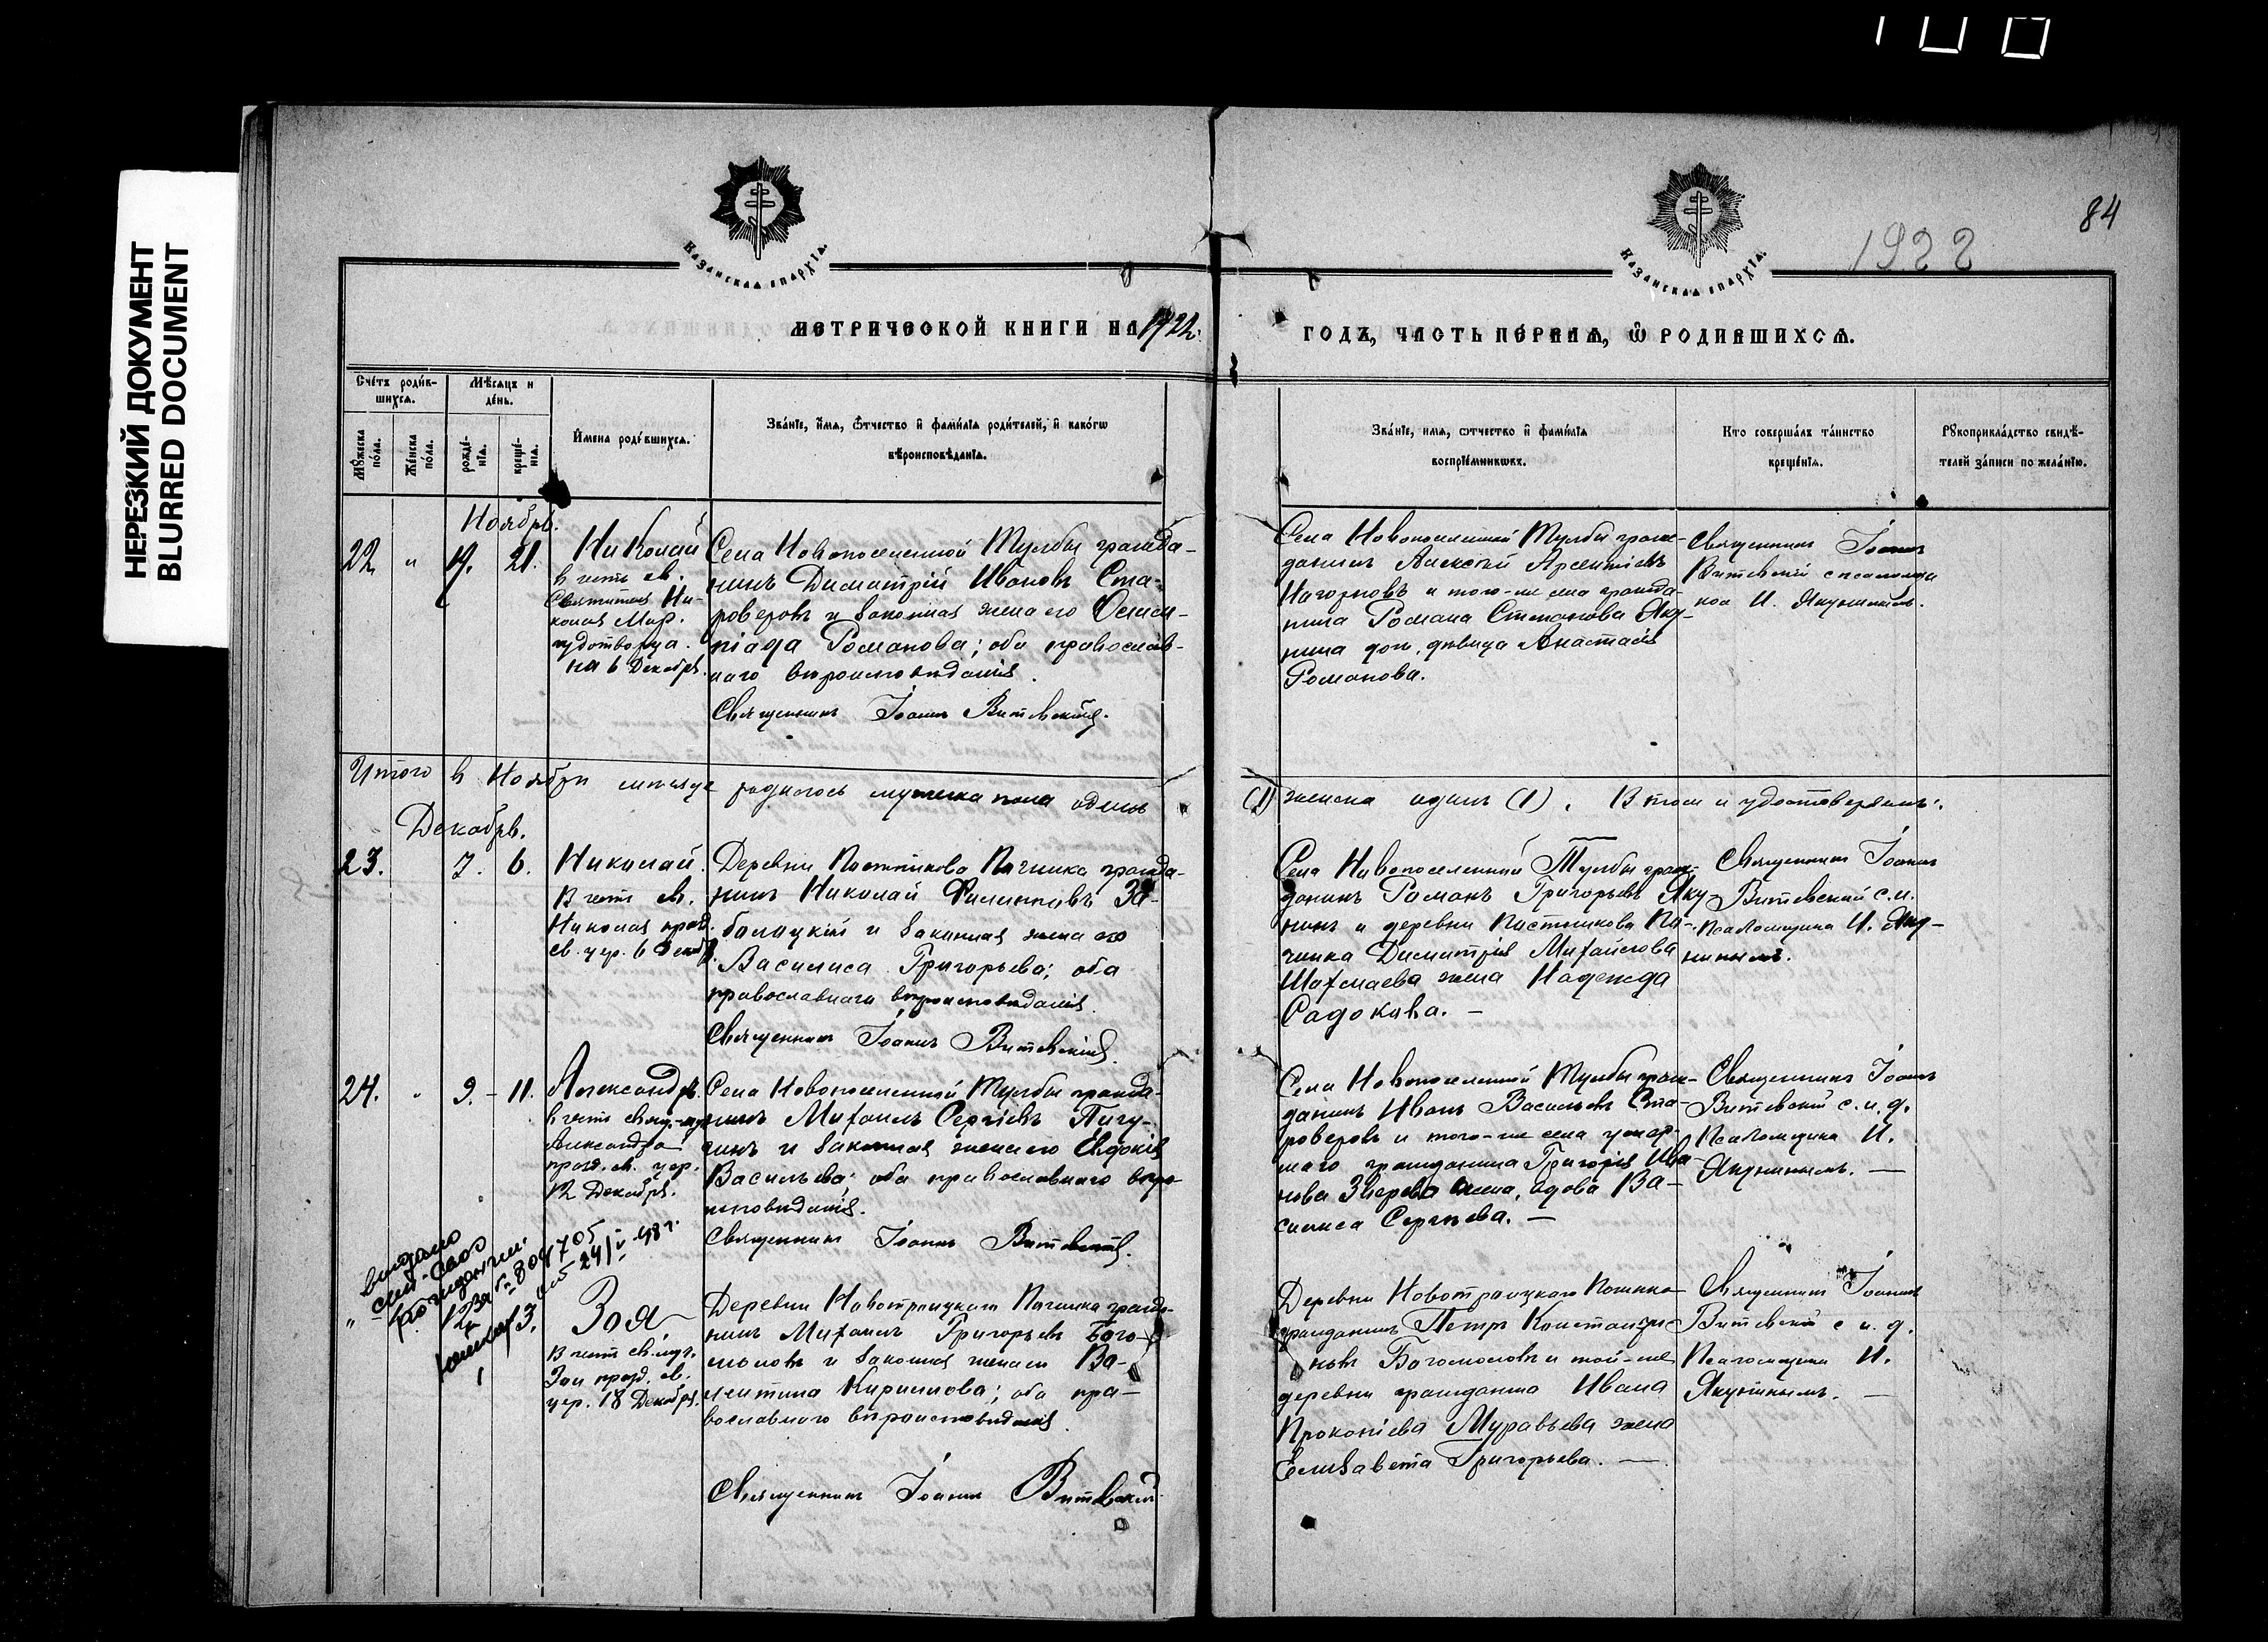 НЕРЕЗКИЙ ДОКУМЕНТ
BLURRED DOCUMENT
84
1922
Казанская епархія.
Казанская епархія.
МЕТРИЧЕСКОЙ КНИГИ НА 1922. ГОДЪ, ЧАСТЬ ПЕРВАЯ, Ѿ РОДИВШИХСЯ.
Счетъ родив-
шихся.
Мѣсяцъ и
день.
Мꙋжеска
пола.
Женска
пола.
рожде-
нія.
креще-
нія.
Имена родившихся.
Званіе, имя, ѿчество и фамилія родителей, и какогѡ
вѣроисповѣданія.
Званіе, имя, ѿчество и фамилія
воспріемникѡвъ.
Кто совершалъ таинство
крещенія.
Рꙋкоприкладство свидѣ-
телей записи по желанію.
Ноябрь.
22. " 19. 21.
Николай
в честь св.
Святителя Ни-
колая Мир.
чудотворца.
на 6 Декабря.
Села Новопоселенной Тумбы гражда-
нинъ Димитрій Ивановъ Ста-
роверовъ и законная жена его Олим-
піада Романова; оба православ-
наго вероисповеданія.
Священникъ Іоаннъ Витевскій.
Села Новопоселенной Тумбы граж-
данинъ Алексей
Нагорновъ и того-же села гражда-
нина Романа Степанова Яку-
нина дочь, девица Анастасія
Романова.
Священникъ Іоаннъ
Витевскій с псаломщи
ком И. Якуниным.
Итого в Ноябре месяце родилось мужеска пола одинъ
(1) женска один (1). В том и удостоверяем:
Декабрь.
23. 7. 6.
Николай.
В честь св.
Николая празд.
св. цер. 6 Декабр.
Деревни Постникова Починка гражда-
нинъ Николай Филипповъ За-
болоцкій и законная жена его
Василиса Григорьева; оба
православнаго вероисповеданія.
Священникъ Іоаннъ Витевскій.
Села Новопоселенной Тумбы граж-
данинъ Романъ Григорьевъ Яку-
нинъ и деревни Постникова По-
чинка Димитрія Михайлова
Шахмаева жена Надежда
Садокова. —
Священник Іоаннъ
Витевский с.и.
Псаломщика И. Яку-
ниным.
24. " 9. - 11.
Александръ.
в честь свящ.-муч.
Александра
празд. св. цер.
12 Декабря.
Села Новопоселенной Тумбы гражда-
нинъ Михаилъ Сергіевъ Пигу-
нинъ и законная жена его Евдокія
Васильева; оба православнаго веро-
исповеданія.
Священникъ Іоаннъ Витевскій.
Села Новопоселенной Тумбы граж-
данинъ Иванъ Васильевъ Ста-
роверовъ и того-же села умер-
шаго гражданина Григорія Ива-
нова Зверева жена, вдова Ва-
силиса Сергеева. —
Священникъ Іоаннъ
Витевскій с.и.д.
Псаломщика И.
Якуниным. —
выдано
от 24/
48 г.
Зоя
В честь св. муч.
Зои празд. св.
цер. 18 Декабря.
Деревни Новотроицкаго Починка гражда-
нинъ Михаилъ Григорьевъ Бого-
моловъ и законная жена его Ва-
лентина Кириллова; оба пра-
вославнаго вероисповеданія.
Священникъ Іоаннъ Витевскій
Деревни Новотроицкаго Починка
гражданинъ Петръ Константи-
новъ Богомоловъ и той-же
деревни гражданина Ивана
Прокопіева Муравьева жена
Елизавета Григорьева. —
Священник Іоаннъ
Витевскій с и. д.
Псаломщика И.
Якуниным. —